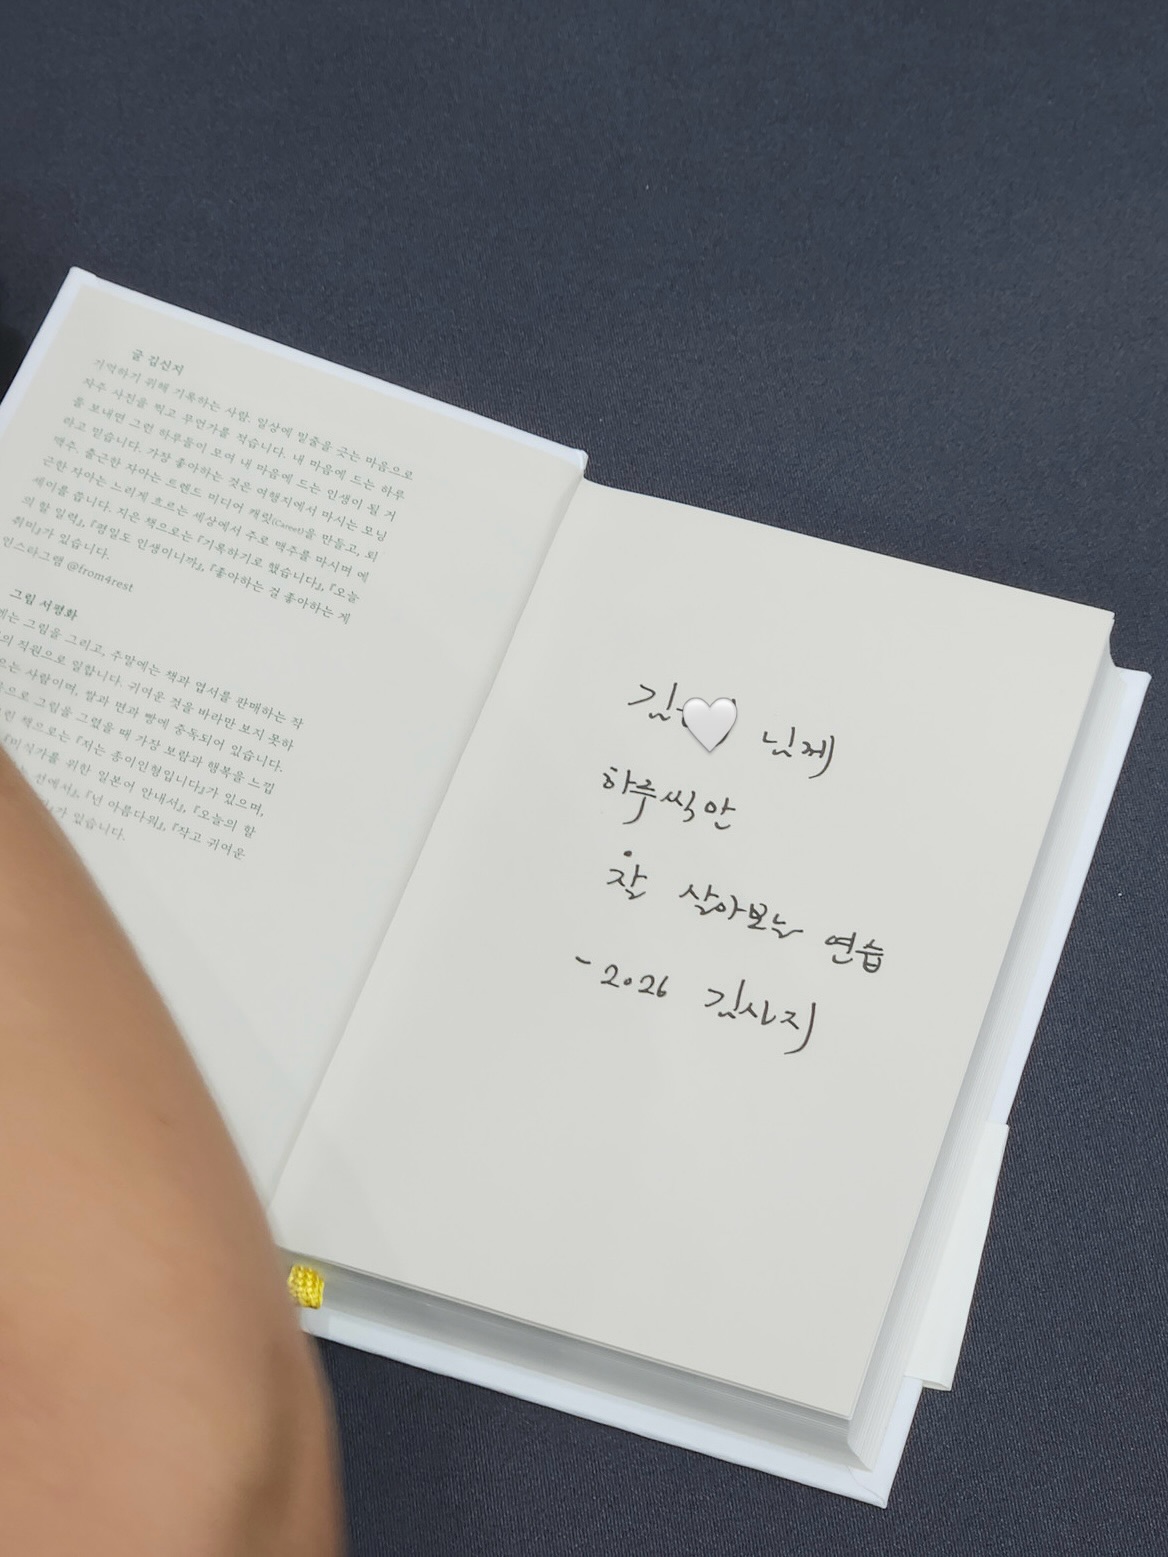 글 김신지
기억하기 위해 기록하는 사람. 일상에 밑줄을 긋는 마음으로
자주 사진을 찍고 무언가를 적습니다. 내 마음에 드는 하루
를 보내면 그런 하루들이 모여 내 마음에 드는 인생이 될 거
라고 믿습니다. 가장 좋아하는 것은 여행지에서 마시는 모닝
맥주. 출근한 자아는 트렌드 미디어 캐릿(Careet)을 만들고, 퇴
근한 자아는 느리게 흐르는 세상에서 주로 맥주를 마시며 에
세이를 씁니다. 지은 책으로는 『기록하기로 했습니다』, 『오늘
의 할 일력』, 『평일도 인생이니까』, 『좋아하는 걸 좋아하는 게
취미』가 있습니다.
인스타그램 @from4rest
그림 서평화
에는 그림을 그리고, 주말에는 책과 엽서를 판매하는 작
의 직원으로 일합니다. 귀여운 것을 바라만 보지 못하
는 사람이며, 쌀과 면과 빵에 중독되어 있습니다.
으로 그림을 그렸을 때 가장 보람과 행복을 느낍
린 책으로는 『저는 종이인형입니다』가 있으며,
『미식가를 위한 일본어 안내서』, 『오늘의 할
선에서』, 『넌 아름다워』, 『작고 귀여운
가 있습니다.
김 님께
하루씩만
잘 살아보는 연습
- 2026 김신지